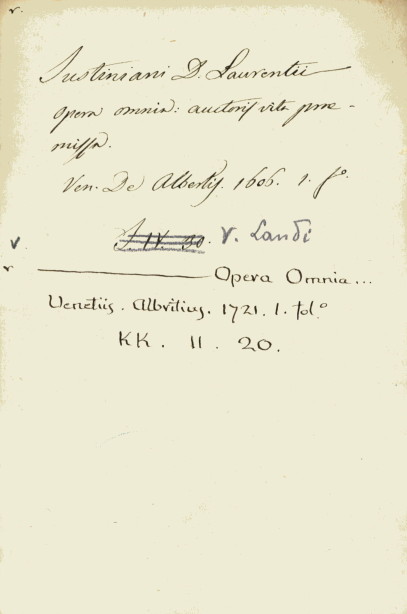 v.
Justiniani D. Laurentii
opera omnia: auctoris vita prae-
missa.
Ven. De Albertis. 1606. 1. fo.
V. Landi
v
v ——— Opera Omnia...
Venetiis. Albritius. 1721. 1. fol.o
KK. II. 20.